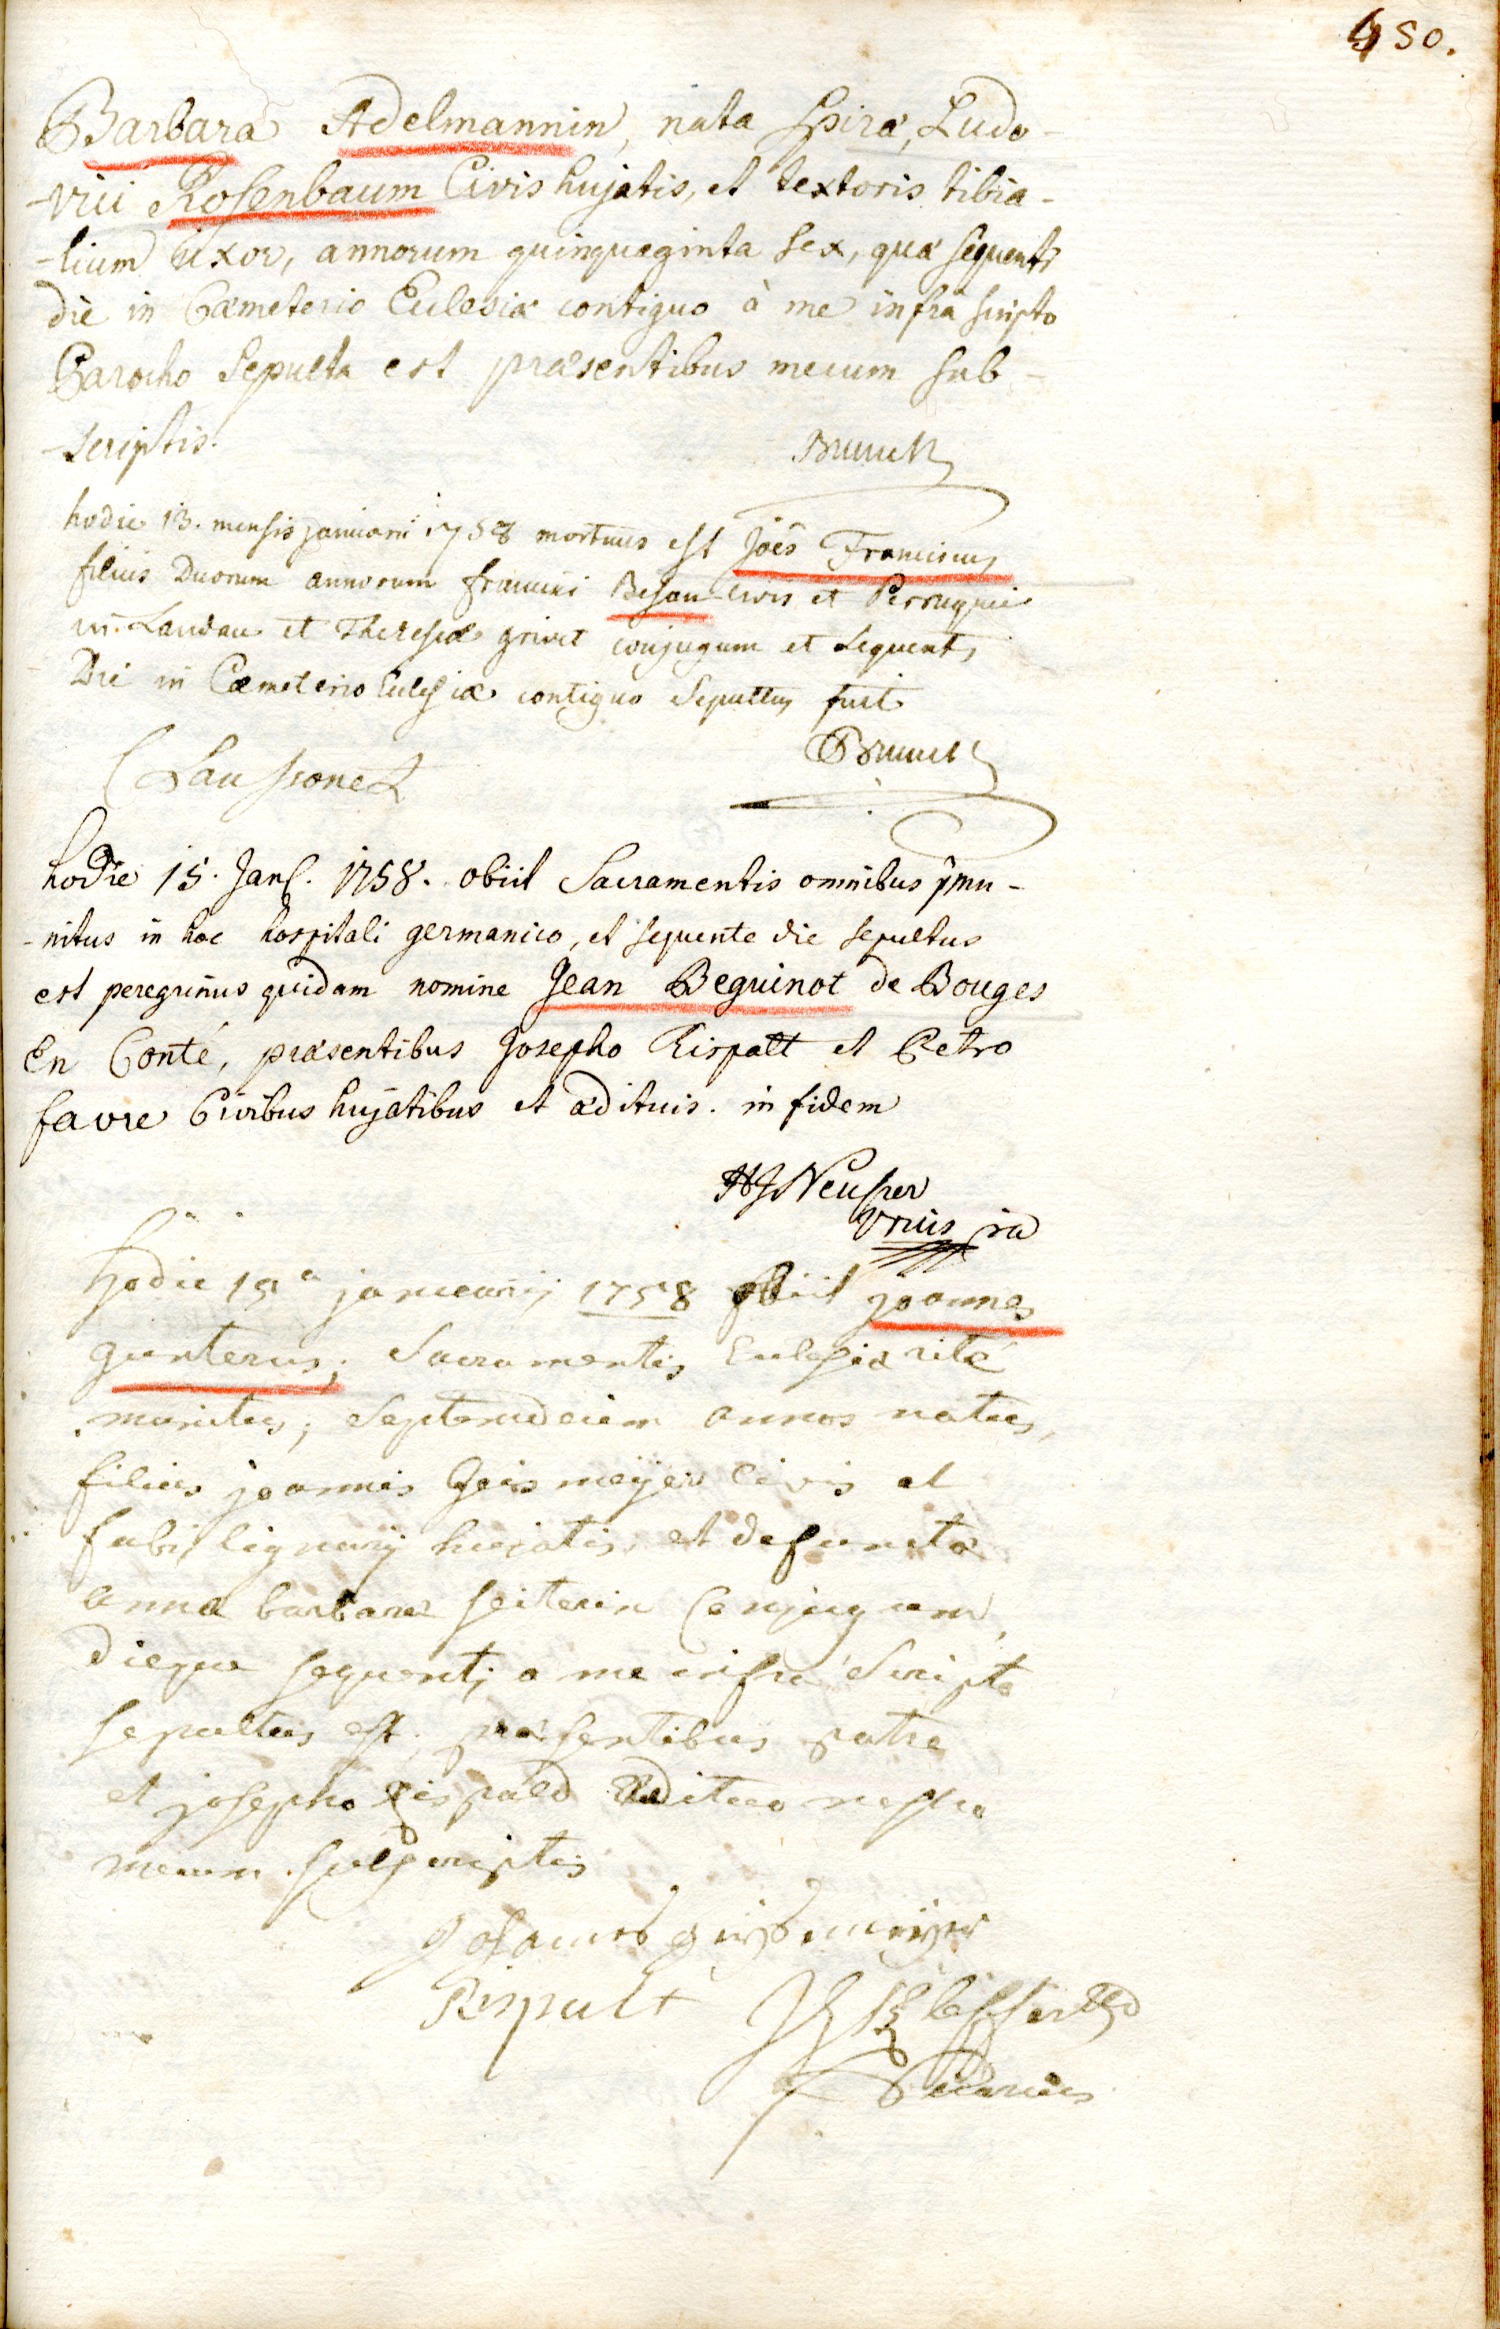 450.
Barbara Adelmannin, nata Spiræ, Ludo-
-vici Rosenbaum Civis hujatis, et textoris tibia-
-lium uxor, annorum quinquaginta sex, quæ sequenti
die in Cæmeterio Ecclesiæ contiguo à me infra scripto
Parocho Sepulta est præsentibus mecum sub-
-scriptis.
Brunck
hodie 13. mensis januarii 1758 mortuus est Joês Franciscus
filius Duorum annorum francisci Besan civis et Perruquii
in Landau et Theresiæ grivet conjugum et sequenti
Die in Cæmeterio Ecclesiæ contiguo Sepultus fuit
Brunck
Laussonet
hodie 15. Jan. 1758. obiit Sacramentis omnibus præmu-
-nitus in hoc hospitali germanico, et sequente die sepultus
est peregrinus quidam nomine Jean Beguinot de Bouges
En Conté, præsentibus Josepho Rispalt et Petro
favre Civibus hujatibus et ædituis. in fidem
HJ Neusser
hodie 19a januarij 1758 obiit joannes
gunterus; Sacramentis Ecclesiæ rité
munitus; Septemdecim annos natus,
filius joannis Geismeijer civis et
fabri lignarij huijatis, et defunctæ
annæ barbaræ seiterin Conjugum,
dieque sequenti a me infra Scripto
sepultus est, præsentibus patre
et josepho Rispald Ædituo nostro
mecum subscriptis
Johannes geijsmeijer
Rispalt
Vicarius